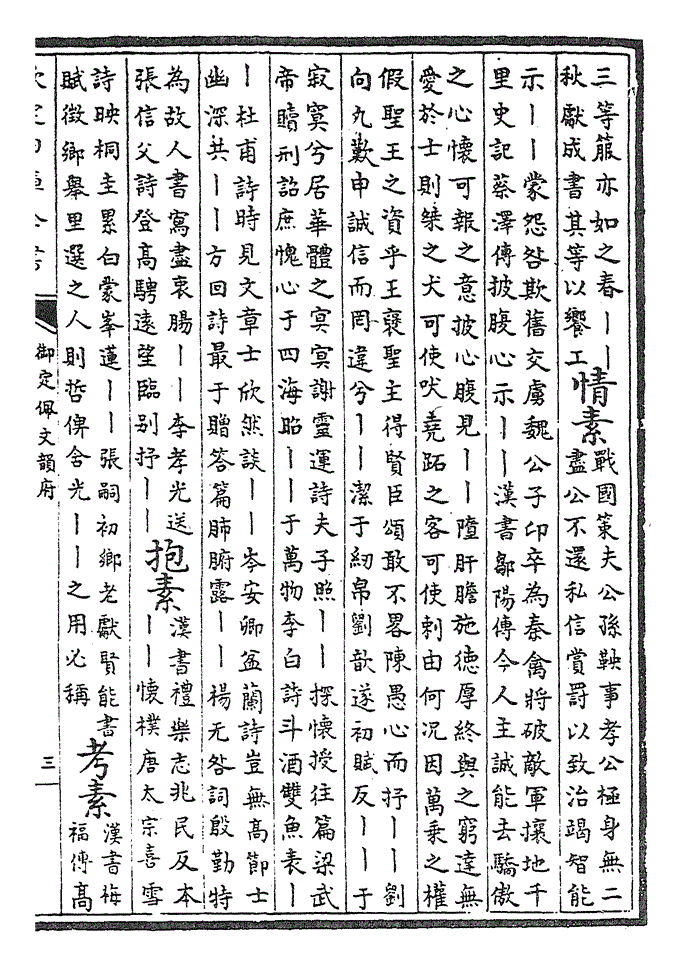 三等服亦如之春丨丨
秋獻成書其等以饗工
情素
戰國策夫公孫鞅事孝公極身無二
盡公不還私信賞罰以致治竭智能
示丨丨蒙怨咎欺舊交虜魏公子卬卒為秦禽將破敵軍攘地千
里史記蔡澤傳披腹心示丨丨漢書鄒陽傳今人主誠能去驕傲
之心懷可報之意披心腹見丨丨隳肝膽施德厚終與之窮達無
愛於士則桀之犬可使吠堯跖之客可使刺由何况因萬乗之權
假聖王之資乎王襃聖主得賢臣頌敢不畧陳愚心而抒丨丨劉
向九歎申誠信而罔違兮丨丨潔于紉帛劉歆遂初賦反丨丨于
寂寞兮居華體之冥冥謝靈運詩夫子照丨丨探懷授往篇梁武
帝贖刑詔庶愧心于四海昭丨丨于萬物李白詩斗酒雙魚表丨
丨杜甫詩時見文章士欣然談丨丨岑安卿盆蘭詩豈無高節士
幽深共丨丨方回詩最于贈答篇肺腑露丨丨楊无咎詞殷勤特
為故人書寫盡衷腸丨丨李孝光送
張信父詩登高騁遠望臨別抒丨丨
抱素
漢書禮樂志兆民反本
丨丨懷樸唐太宗喜雪
詩映桐圭累白蒙峯蓮丨丨張嗣初鄉老獻賢能書
賦徵鄉舉里選之人則哲俾舍光丨丨之用必稱
考素
漢書梅
福傳高
欽定四庫全書
御定佩文韻府
三